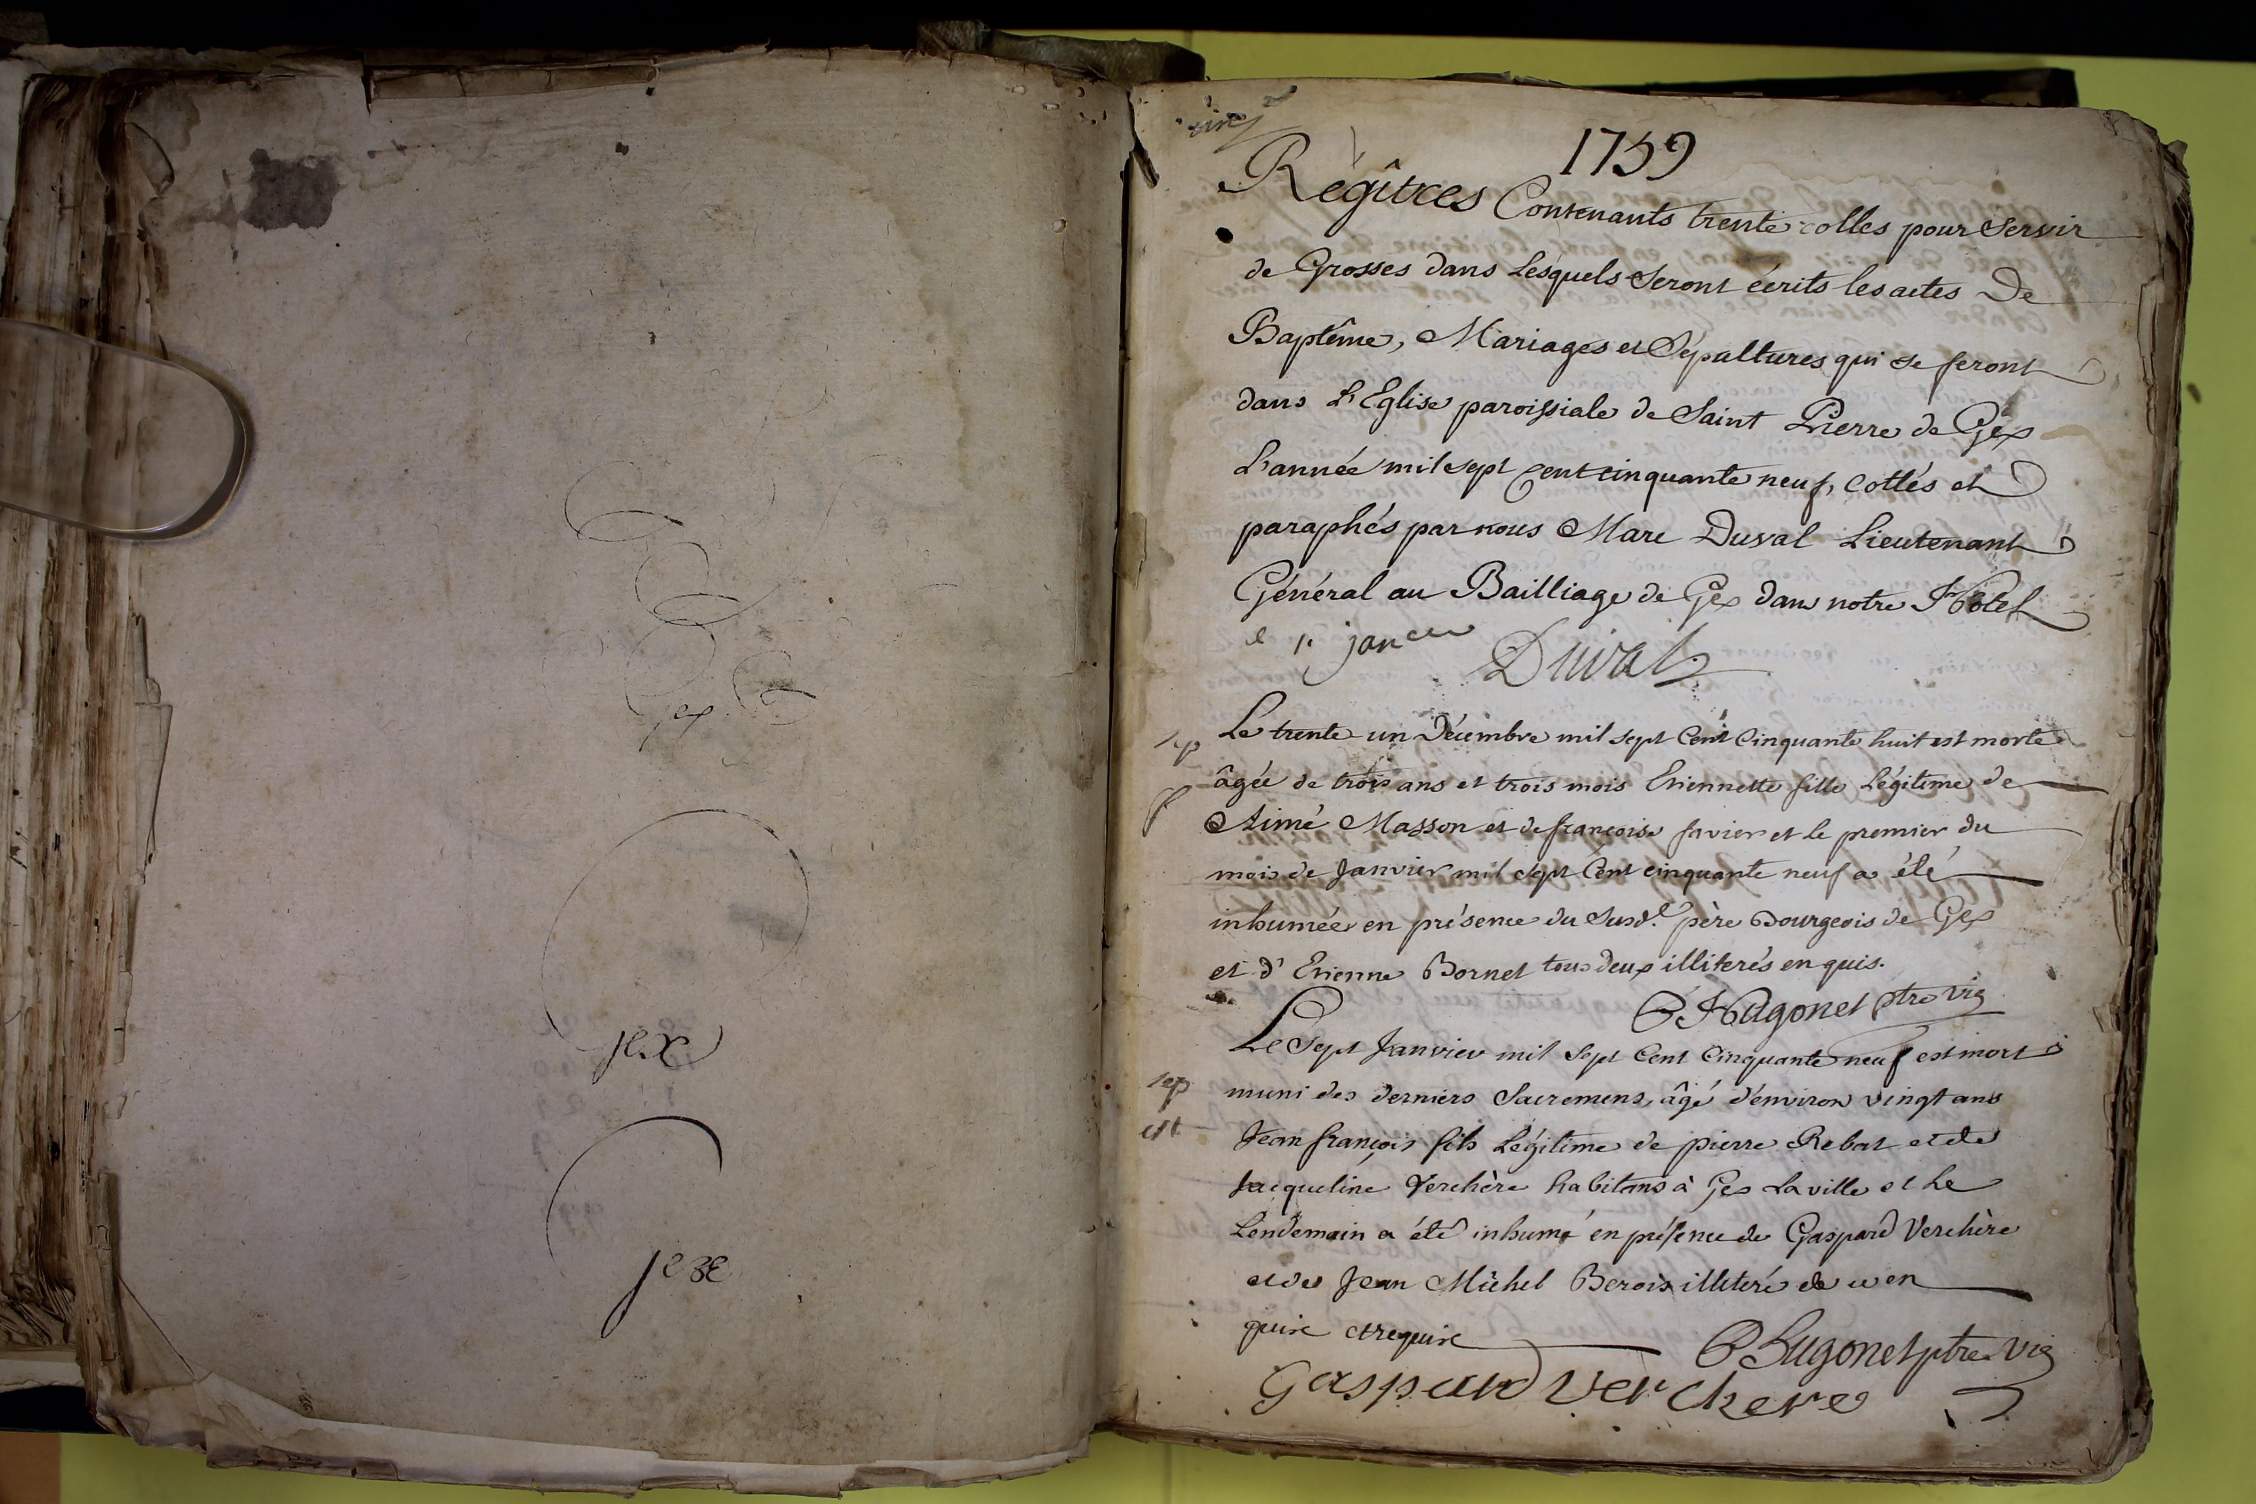 gex
gex
gex
1759
Regîtres Contenants trente colles pour Servir
de Grosses dans Lesquels Seront écrits les actes De
Baptême, Mariages et Sépultures qui se feront
dans L'Eglise paroissiale de Saint Pierre de Gex
L'année mil sept cent cinquante neuf, cottés et
paraphés par nous Marc Duval Lieutenant
Général au Bailliage de Gex dans notre Hotel
le 1r. janer
Duval
sep
Le trente un Décembre mil sept Cent Cinquante huit est morte
âgée de trois ans et trois mois Etiennette fille Légitime de
Aimé Masson et de françoise favier et le premier du
mois de Janvier mil sept Cent cinquante neuf a été
inhumée en présence du Susd.t père Bourgeois de Gex
et d'Etienne Bornet tous deux illiterés enquis.
Hugonet ptre vic
Le Sept Janvier mil Sept Cent Cinquante neuf est mort
sep
muni des derniers Sacremens, âgé d'environ vingt ans
Jean françois fils Légitime de pierre Rebat et de
Jacqueline Verchère habitans à Gex La ville et Le
Lendemain a été inhumé en présence de Gaspard Verchère
et de Jean Michel Berois illiteré de ce en
quire et requis
Hugonet ptre vic
Gaspard Verchere